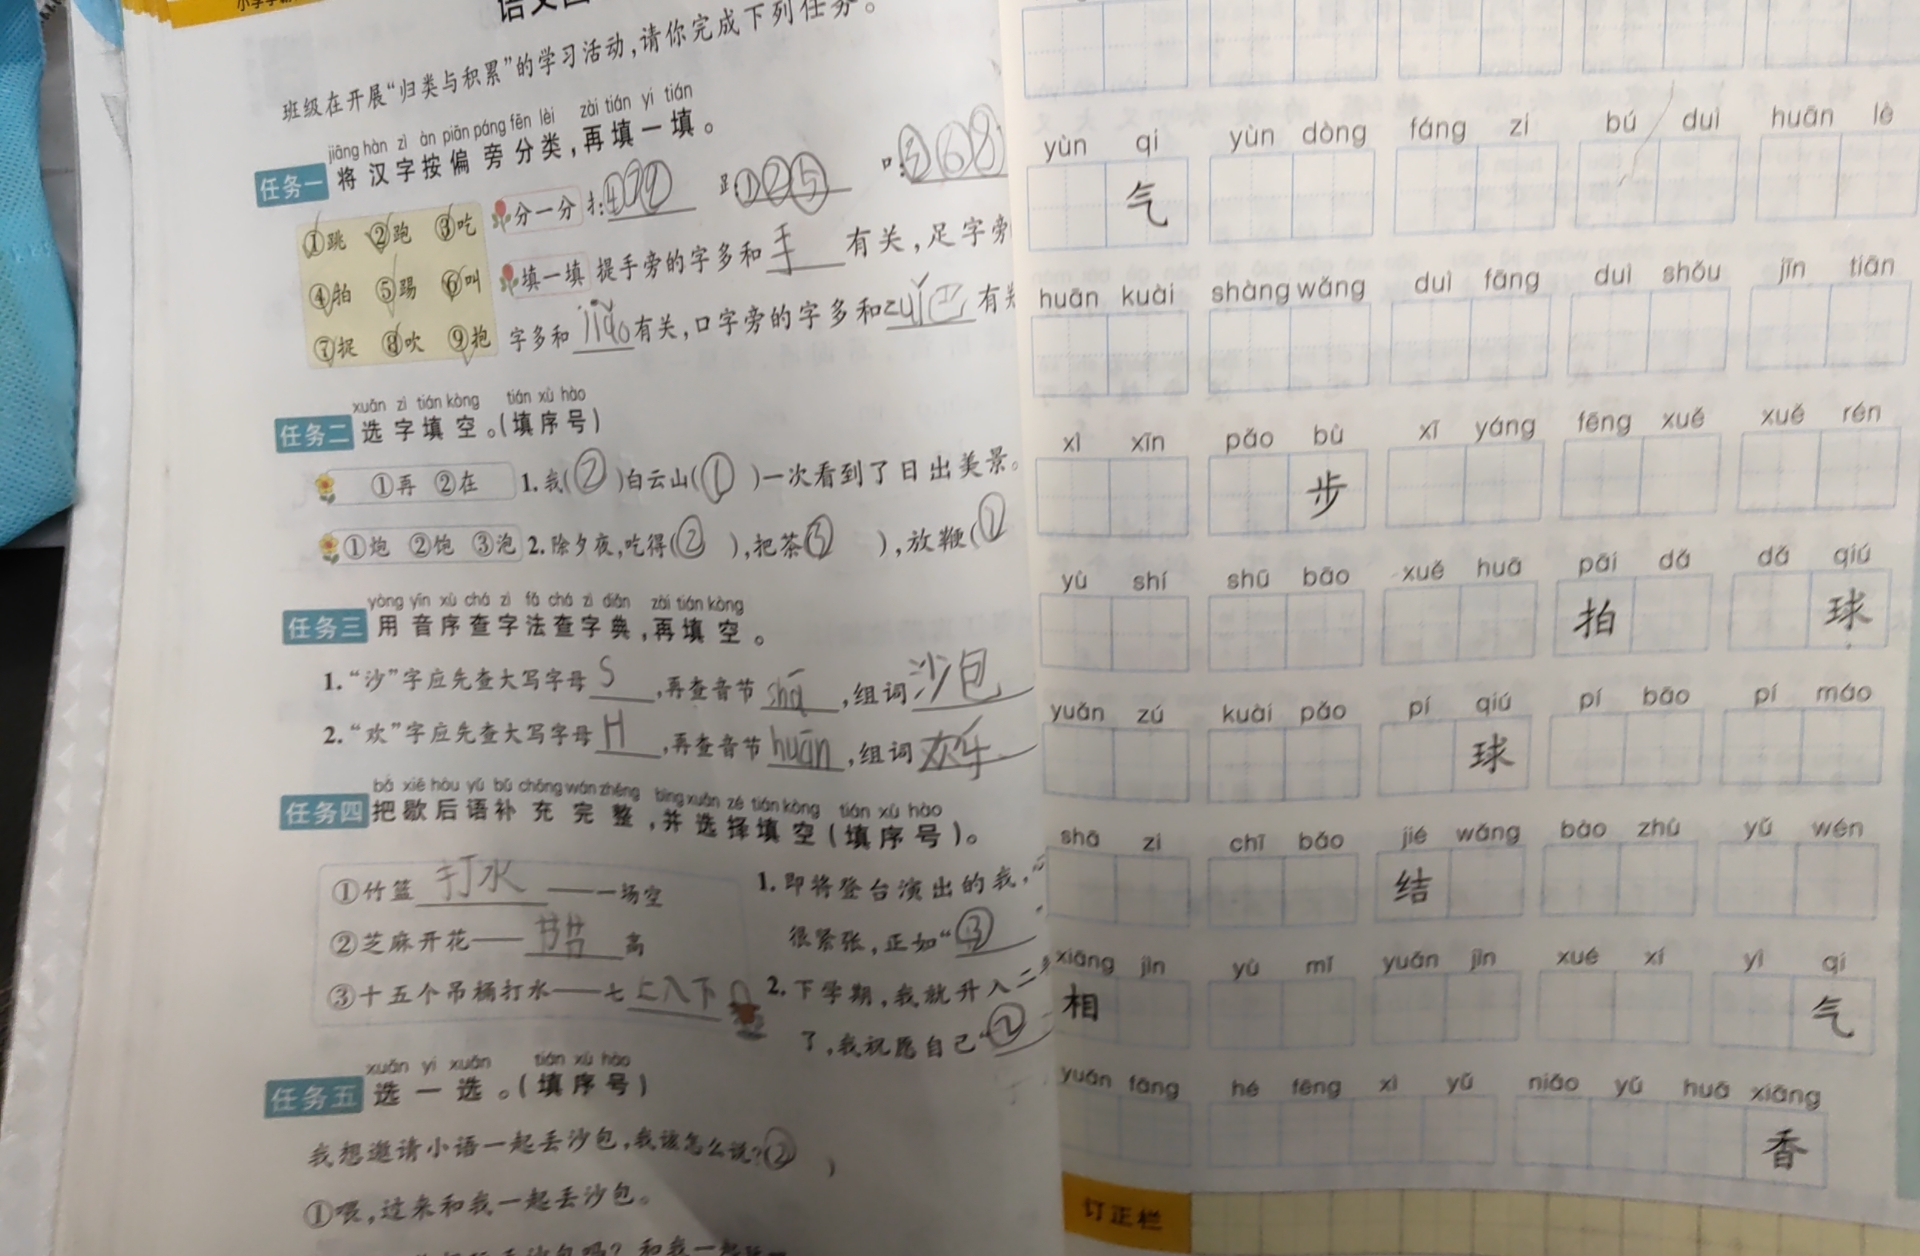 班级在开展“归类与积累”的学习活动,请你完成下列任务。
jiāng hàn zì àn piān páng fēn lèi zài tián yi tián
任务一 将汉字按偏旁分类,再填一填。
①跳 ②跑 ③吃
④拍 ⑤踢 ⑥叫
⑦捉 ⑧吹 ⑨抱
分一分 扌:④⑦⑨ ⻊:①②⑤ 口:③⑥⑧
填一填 提手旁的字多和手有关,足字旁
字多和jiǎo有关,口字旁的字多和zuǐ巴有关
xuǎn zì tián kòng tián xù hào
任务二 选字填空。(填序号)
①再 ②在 1.我(②)白云山(①)一次看到了日出美景。
①炮 ②饱 ③泡 2.除夕夜,吃得(②),把茶③),放鞭(①
yòng yīn xù chá zì fǎ chá zì diǎn zài tián kòng
任务三 用音序查字法查字典,再填空。
1.“沙”字应先查大写字母S,再查音节shā,组词沙包
2.“欢”字应先查大写字母H,再查音节huān,组词欢乐
bǎ xiē hòu yǔ bǔ chōng wán zhěng bìng xuǎn zé tián kòng tián xù hào
任务四 把歇后语补充完整,并选择填空(填序号)。
①竹篮打水——一场空
②芝麻开花——节节高
③十五个吊桶打水——七上八下
1.即将登台演出的我,
很紧张,正如“③
2.下学期,我就升入二
了,我祝愿自己“②
xuǎn yi xuǎn tián xù hào
任务五 选一选。(填序号)
我想邀请小语一起丢沙包,我该怎么说?(②)
①喂,过来和我一起丢沙包。
yùn qi yùn dòng fáng zi bú duì huān lè
气
huān kuài shàng wǎng duì fāng duì shǒu jīn tiān
xì xīn pǎo bù xī yáng fēng xuě xuě rén
步
yù shí shū bāo xuě huā pāi dǎ dǎ qiú
拍 球
yuǎn zú kuài pǎo pí qiú pí bāo pí máo
球
shā zi chī bǎo jié wǎng bào zhú yǔ wén
结
xiāng jìn yù mǐ yuǎn jìn xué xí yì qì
相 气
yuǎn fāng hé fēng xì yǔ niǎo yǔ huā xiāng
香
订正栏